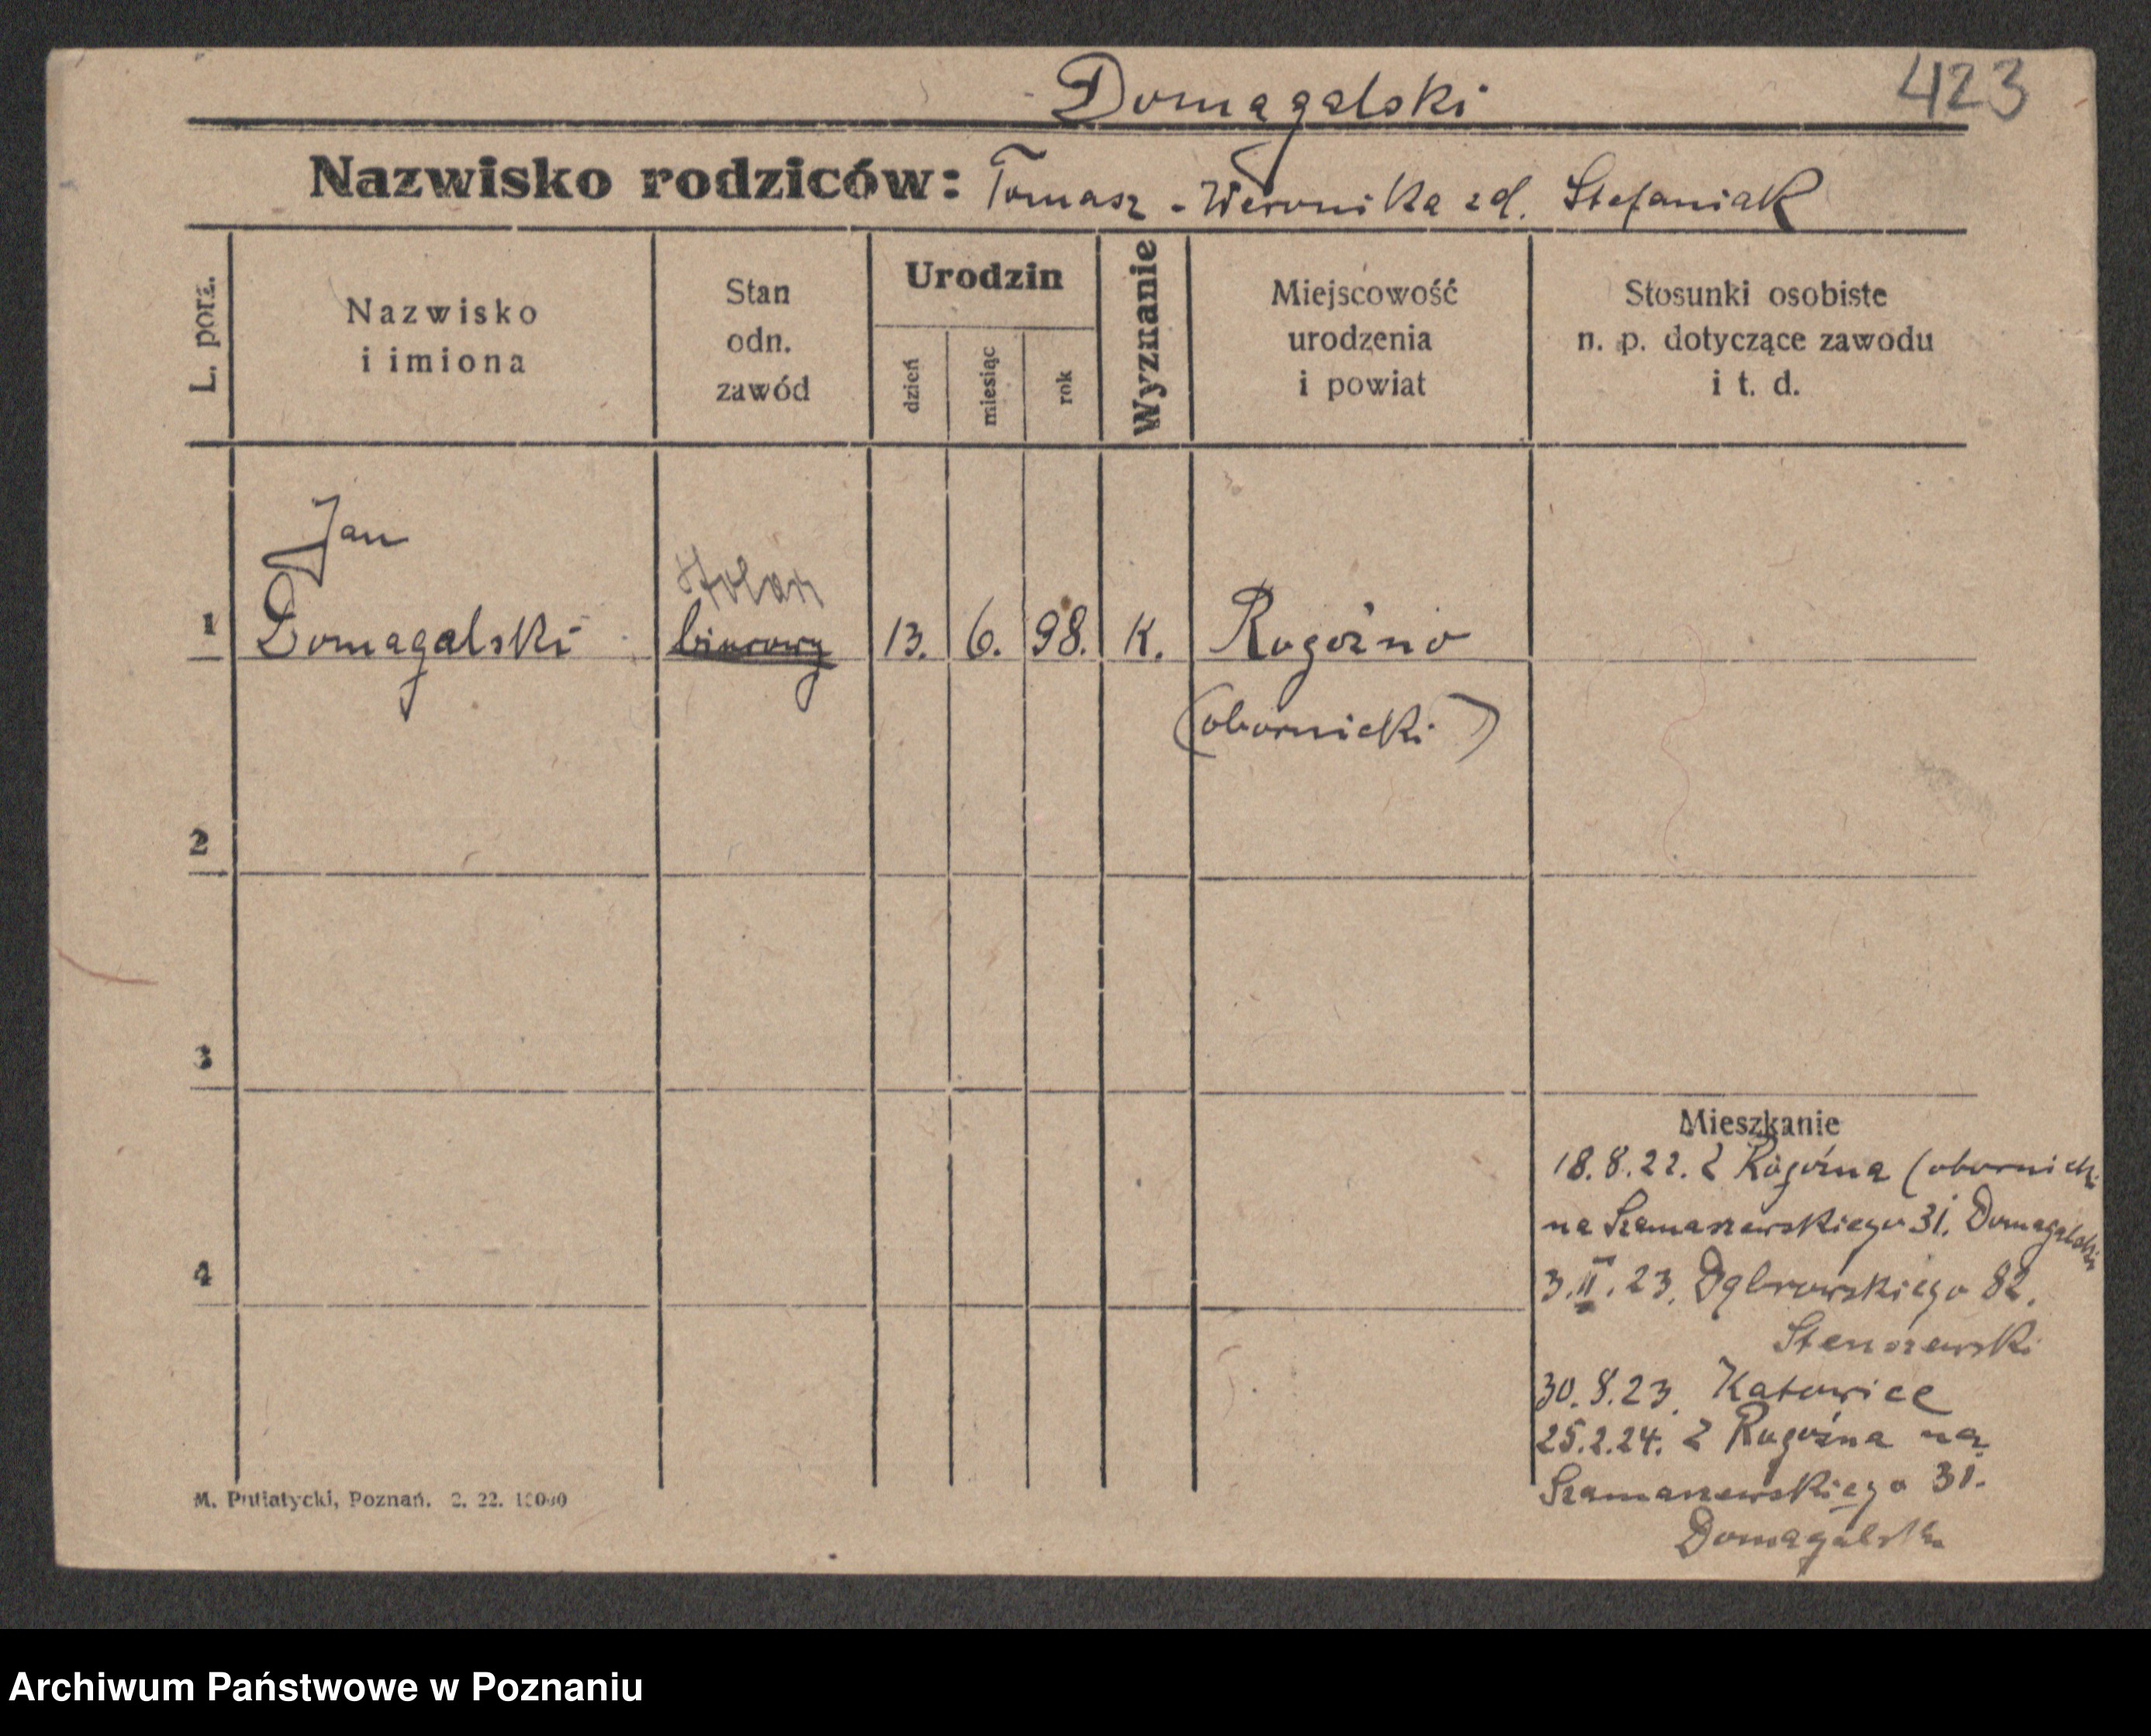 Domagalski 423
Nazwisko rodziców: Tomasz - Weronika zd. Stefaniak
L. porz.
Nazwisko
i imiona
Stan
odn.
zawód
Urodzin
dzień
miesiąc
rok
Wyznanie
Miejscowość
urodzenia
i powiat
Stosunki osobiste
n. p. dotyczące zawodu
i t. d.
Jan
stolarz
1 Domagalski biurowy 13. 6. 98. K. Rogoźno
(obornicki)
2
3
Mieszkanie
18.8.22. Z Rogoźna (obornicki
na Szamarzewskiego 31. Domagalski
4
3.II.23. Dąbrowskiego 82.
30.8.23. Katowice
25.2.24. Z Rogoźna na
Szamarzewskiego 31.
Domagalski
M. Putiatycki, Poznań. 2. 22. 10000
Archiwum Państwowe w Poznaniu